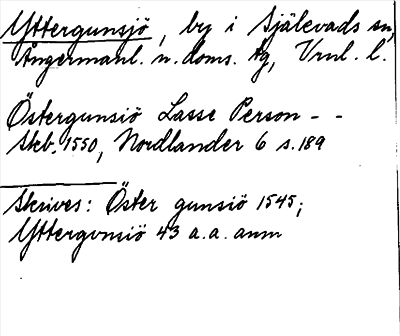 Yttergunsjö, by i Själevads sn,
Ångermanl. n. doms. tg, Vrnl. l.
Östergunsiö Lasse Person - -
Skb. 1550, Nordlander 6 s. 189
Skrives: Öster gunsiö 1545;
Yttergvnsiö 43 a.a. anm